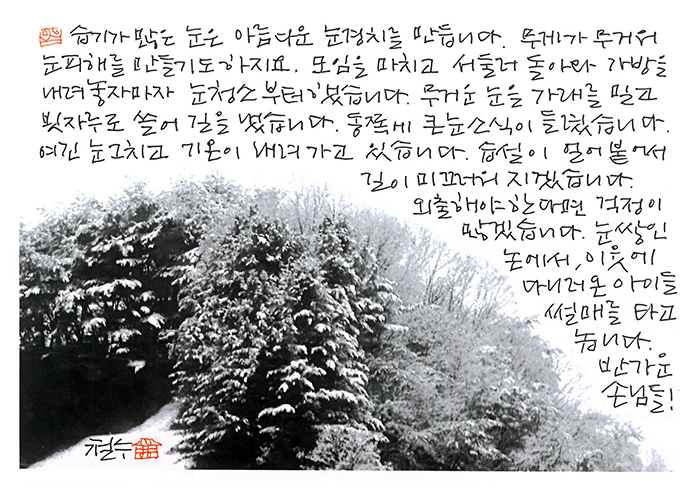 습기가 많은 눈은 아름다운 눈경치를 만듭니다. 무게가 무거워
눈피해를 만들기도하지요. 모임을 마치고 서둘러 돌아와 가방을
내려놓자마자 눈청소부터했습니다. 무거운 눈을 가래로 밀고
빗자루로 쓸어 길을 냈습니다. 동쪽에 큰눈소식이 들렸습니다.
여긴 눈그치고 기온이 내려가고 있습니다. 습설이 얼어붙어서
길이 미끄러워 지겠습니다.
외출해야한다면 걱정이
많겠습니다. 눈쌓인
논에서, 이웃에
다니러온 아이들
썰매를 타고
놉니다.
반가운
손님들!
철수